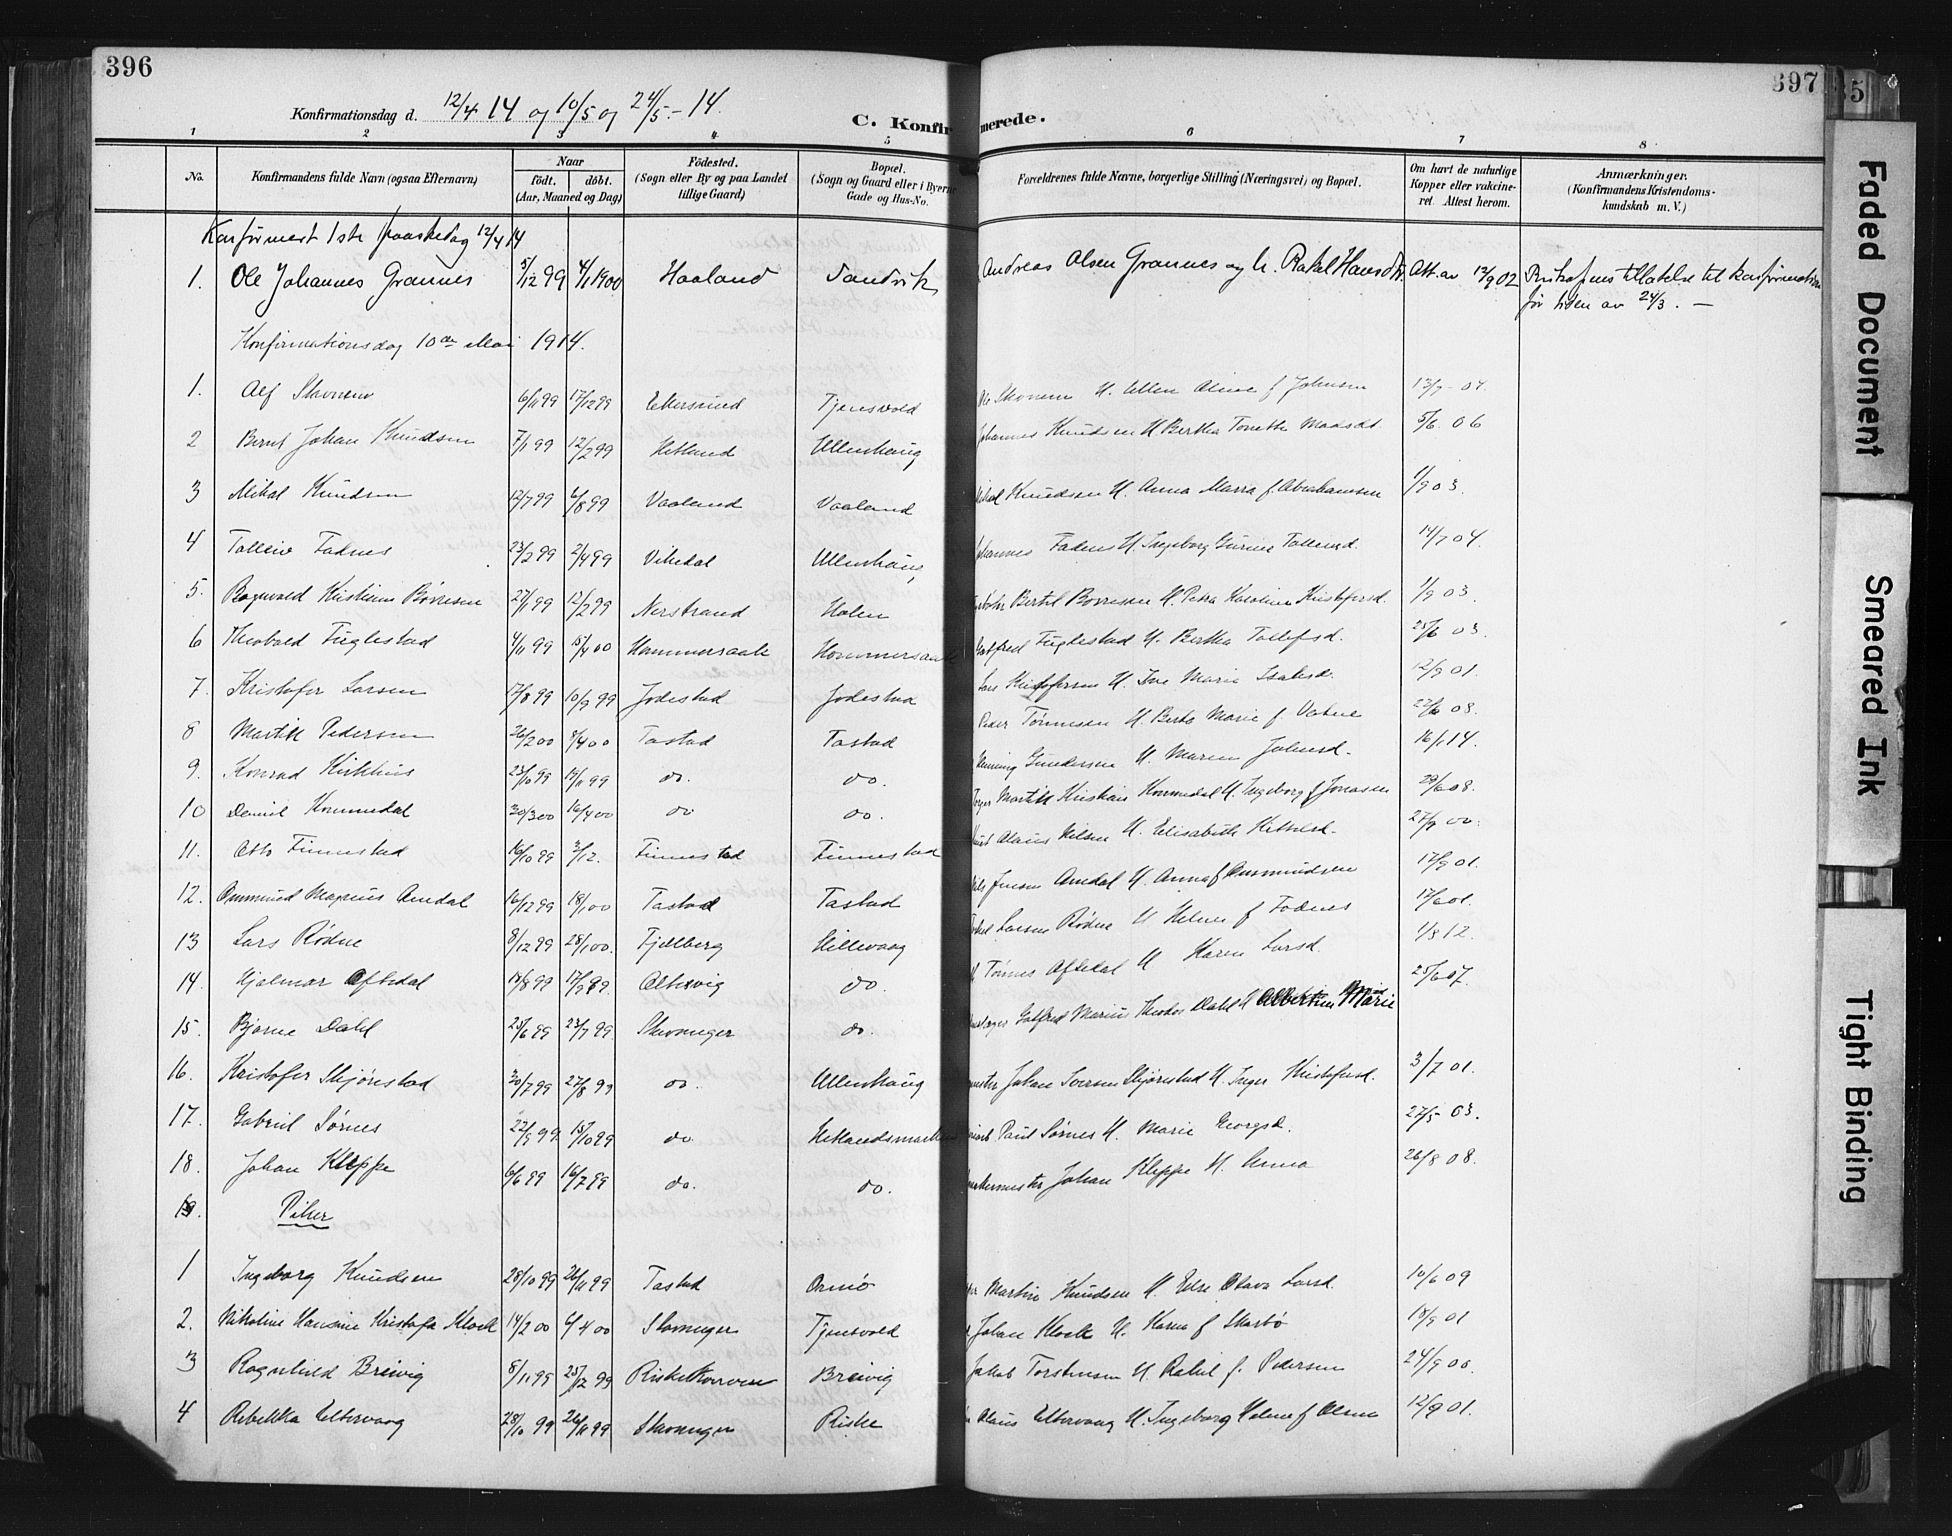 396
397
35
Konfirmationsdag d. 12/4 14 og 10/5 og 24/5 - 14.
C. Konfirmerede.
1 2 3 4 5 6 7 8
No.
Konfirmandens fulde Navn (ogsaa Efternavn)
Naar
födt. döbt.
(Aar, Maaned og Dag)
Födested.
(Sogn eller By og paa Landet
tillige Gaard)
Bopæl.
(Sogn og Gaard eller i Byerne
Gade og Hus-No.
Forældrenes fulde Navne, borgerlige Stilling (Næringsvei) og Bopæl.
Om havt de naturlige
Kopper eller vakcine-
ret. Attest herom.
Anmærkninger.
(Konfirmandens Kristendoms-
kundskab m. V.)
Konfirmert 1ste paaskedag 12/4 14
1. Ole Johannes Grannes 5/12 99 4/1 1900 Haaland Sandvik Andreas Olsen Grannes og h. Rakel Hansdtr. Att. av 12/9 02 Biskopens tillatelse til konfirmation
før tiden av 24/3. —
Konfirmationsdag 10de Mai 1914.
1. Alf Skonem 6/11 99 17/12 99 Ekersund Tjensvold Ole Skonem H. Ellen Oline f Johnsen 13/9 - 04.
2 Bernt Johan Knudsen 7/1 99 12/2 99 Hetland Ullenhaug Johannes Knudsen H. Bertha Tonette Madsdt 5/6. 06
3 Mikal Knudsen 12/7 99 6/8 99 Vaaland Vaaland Knudsen H. Anna Maria f Abrahamsen 1/9 03.
4 Tolleiv Fadnes 23/2 99 2/4 99 Vikedal Ullenhaug Johannes Fadnes H. Ingeborg Gurine Tollevsd. 14/7 04.
5. Ragnvald Kristian Børresen 27/1 99 12/2 99 Nerstrand Holen Bertil Borresen H. Petra Karoline Kristofersd. 1/9 03.
6 Theobald Fuglestad 4/11 99 15/4 00 Hommersaak Hommersaak Gotfred Fuglestad H. Bertha Tollefsd. 25/6 03.
7. Kristofer Larsen 17/8 99 10/9 99 Jodestad Jodestad Lars Kristofersen H. Ine Marie Isaksd. 12/9 01.
8 Martin Pedersen 26/2 00 8/4 00 Tastad Tastad Peder Tønnesen H. Berta Marie f. Vatne 22/6 03.
9. Konrad Kirkhus 23/10 99 19/11 99 do. do. Henning Gundersen H. Maren Johnsd. 16/1 14.
10 Daniel Hommedal 30/3 00 16/4 00 do do. Martin Kristian Hommedal H. Ingeborg f Jonasen 29/6 08.
11. Otto Finnestad 16/10 99 3/12. Finnestad Finnestad Olaus Nilsen H. Elisabeth Ketelsd. 27/9 00.
12. Ommund Magnus Omdal 16/12 99 18/1 00 Tastad Tastad Nils Jensen Omdal H. Anna f Osmundsen 17/9 01.
13 Lars Rødne 8/12 99 28/1 00. Fjelberg Hillevaag Larsen Rødne H Helene f Fodnes 17/6 01.
14. Hjalmar Aftedal 18/8 99 17/9 99. Olhsvig do. Tønnes Aftedal H Karen Larsd. 1/8 12.
15. Bjarne Dahl 25/6 99 23/7 99 Stavanger do. Gotfred Marius Theodor Dahl H Albertine Marie 25/6 07.
16. Kristofer Skjørestad 30/7 99 27/8 99 do. Ullenhaug Johan Soersen Skjørestad H. Inger Kristofersd. 3/7 01.
17. Gabriel Sørnes 22/9 99. 15/10 99 do. Hetlandsmarken Paul Sørnes H. Marie Georgsd. 27/5 03.
18. Johan Kleppe 6/6 99 16/7 99 do. do. Johan Kleppe H. Anna 26/8 08.
19. Piker
1 Ingeborg Knudsen 28/10 99 26/11 99 Tastad Ormø Martin Knudsen H. Else Olava Larsd. 10/6 09
2. Nikoline Hansine Kristofa Klock 14/2 00 4/4 00 Stavanger Tjensvold Johan Klock H. Karen f Skarbø 18/9 01
3 Ragnhild Breivig 8/11 99 25/12 99 Riskekverven Breivig Jakob Torstensen H. Rakel f. Pedersen 24/9 00.
4 Rebekka Eltervaag 28/10 99 26/11 99 Stavanger Riske Olaus Eltervaag H. Ingeborg Helene f Olsen 12/9 01.
Faded Document
Smeared Ink
Tight Binding